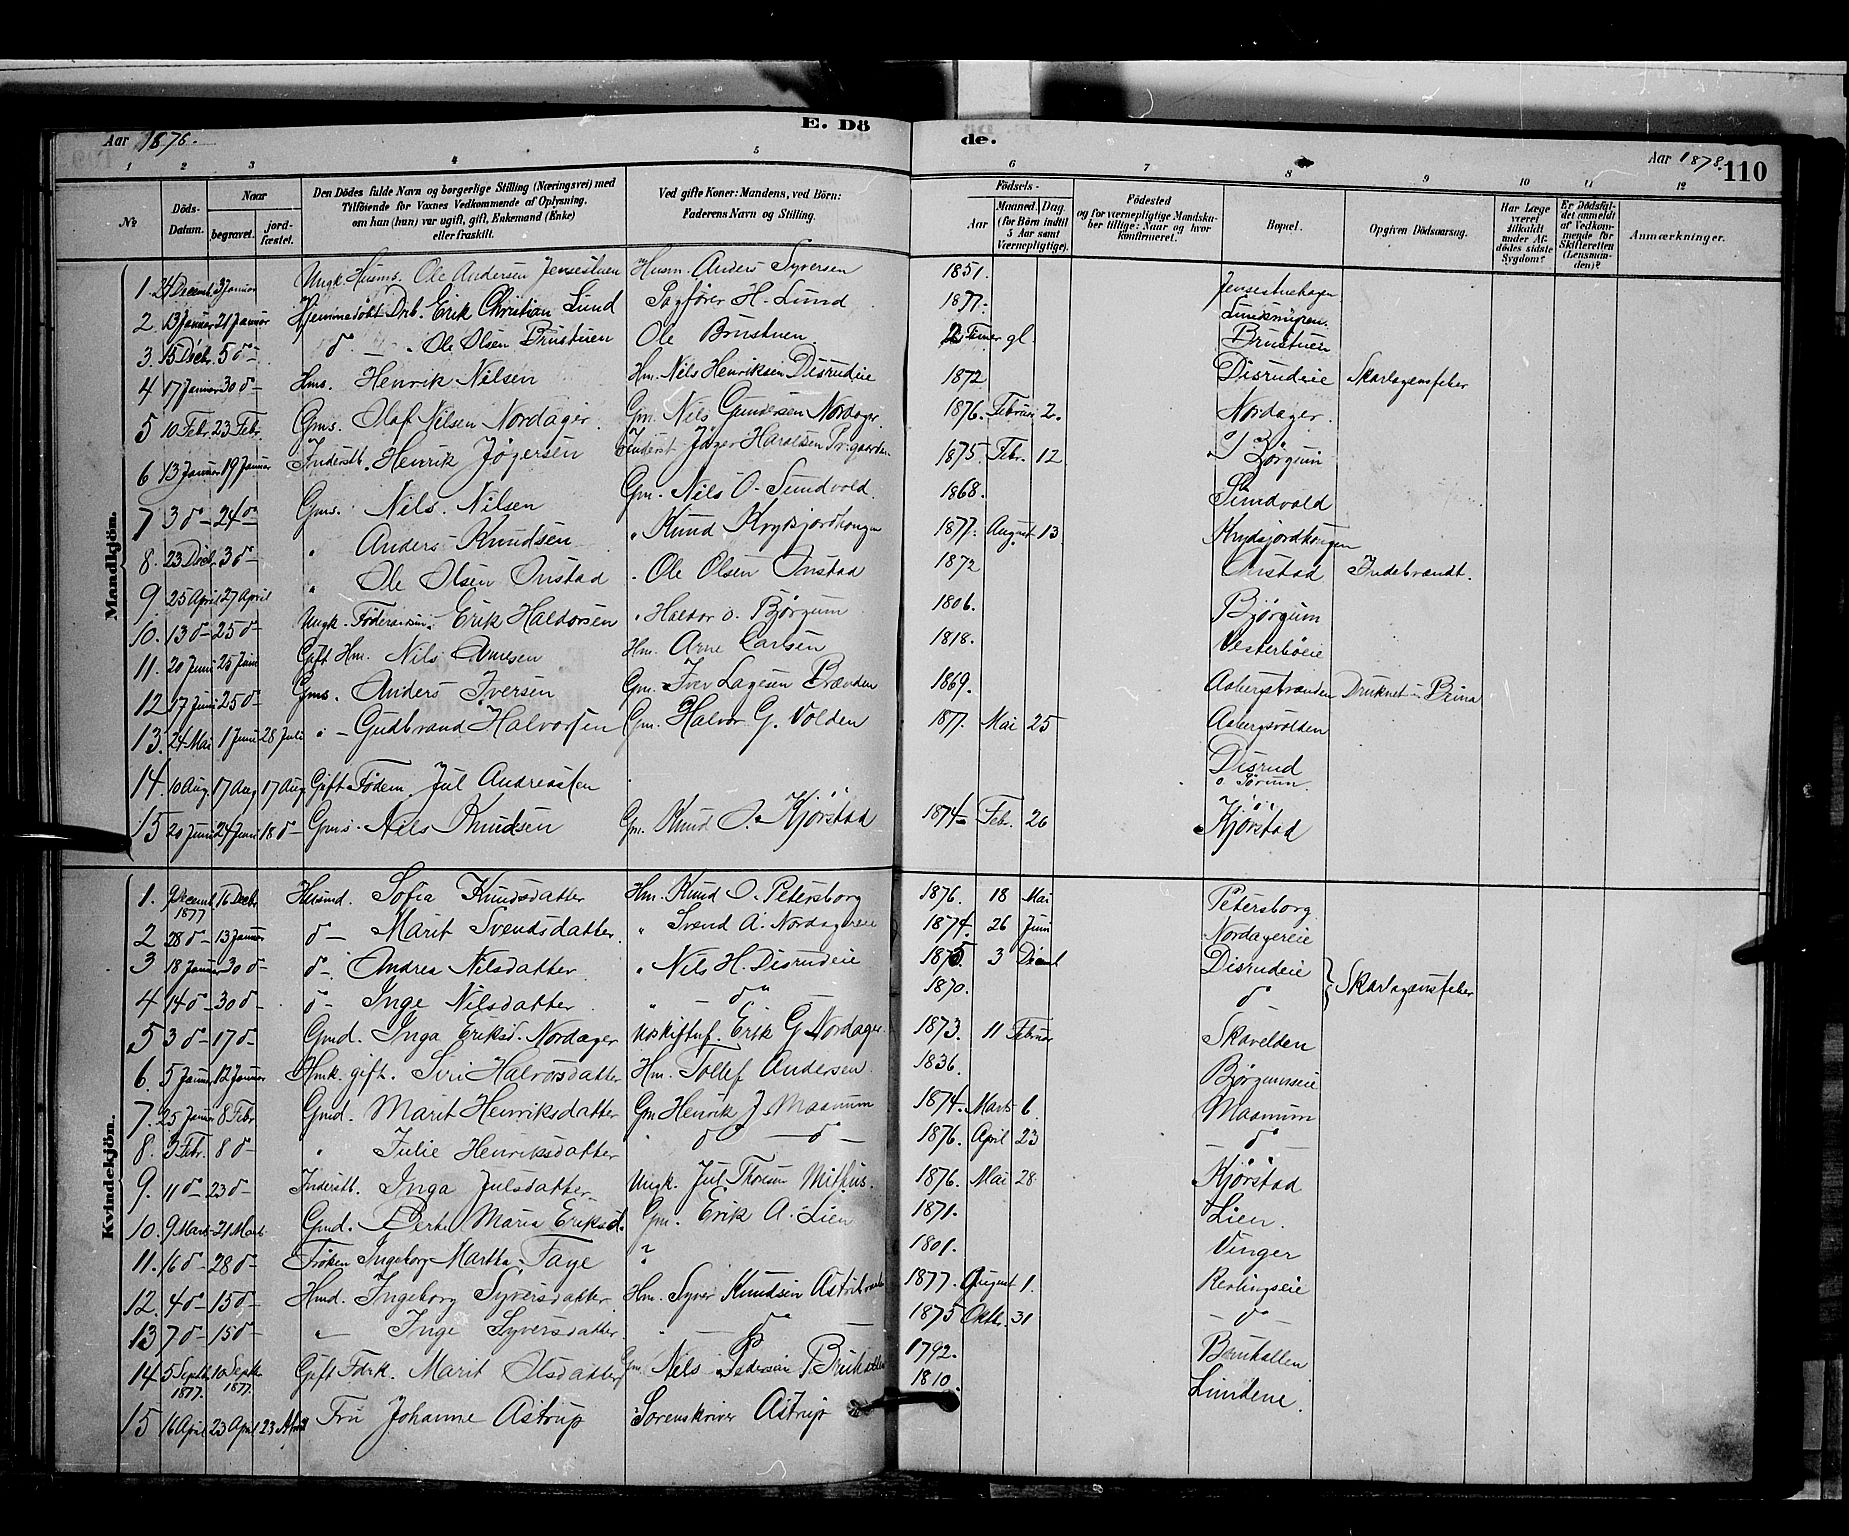 Aar 1878.
E. Dö
de.
Aar 1878.
110
1 2 3 4 5 6 7 8 9 10 11 12
No
Döds-Datum.
Naar
begravet.
jord-fæstet.
Den Dödes fulde Navn og borgerlige Stilling (Næringsvei) med
Tilföiende for Voxnes Vedkommende af Oplysning,
om han (hun) var ugift, gift, Enkemand (Enke)
eller fraskilt.
Ved gifte Koner: Mandens, ved Börn:
Faderens Navn og Stilling.
Födsels-
Aar
Maaned. Dag
(for Börn indtil
5 Aar samt
Værnepligtige).
Födested
og for værnepligtige Mandska-
ber tillige: Naar og hvor
Konfirmeret.
Bopæl.
Opgiven Dödsaarsag.
Har Læge
været
tilkaldt
under Af-
dödes sidste
Sygdom?
Er Dödsfal-
det anmeldt
af Vedkom-
mende for
Skifteretten
(Lensman-
den)?
Anmærkninger.
Mandkjön.
1. 24 Decemb. 3 Januar Ungk. Husms. Ole Andersen Jensestuen Husm. Anders Syversen 1851. Jensestuehagen
2. 13 Januar 21 Januar Hjemmedöbt Drb. Erik Christian Lund Sagfører H. Lund 1877.
3. 15 Decbr. 5 do do Ole Olsen Brustuen Ole Brustuen 2 Timer gl. Brustuen
4 17 Januar 30 do Hms. Henrik Nilsen Hm. Nils Henriksen Disrudeie 1872 Disrudeie Skarlagensfeber
5 10 Febr. 23 Febr. Gms. Olaf Nilsen Nordager. Gm. Nils Gundersen Nordager 1876. Februar 2. Nordager.
6 13 Januar 19 Januar Inderstb. Henrik Jøgersen Inderst Jøger Haraldsen 1875. Febr. 12 Bjørgum
7 3 do 24 do Gms. Nils Nilsen Gm. Nils O. Sundvold. 1868. Sundvold
8. 23 Decb. 3 do " Anders Knudsen " Knud 1877. August 13
9 25 April 27 April " Ole Olsen Onstad " Ole Olsen Onstad 1872 Onstad Indebrændt.
10. 13 do 25 do Ungk. Erik Haldorsen " Haldor O. Bjørgum 1806. Bjørgum
11. 20 Juni 25 Juni Gift Hm. Nils Arnesen Hm. Arne Carlsen 1818. Vesterhøeie
12 17 Juni 25 do Gms. Anders Iversen Gm. Iver Lagesen Brænden 1869. Aabergsbrænden Druknet
13. 24 Mai 1 Juni 28 Juli " Gudbrand Halvorsen Gm. Halvor G. Volden 1877. Mai 25 Aabergsvolden
14. 10 Aug. 17 Aug 17 Aug. Gift Födem. Jul Andreassen Disrud
15 20 Juni 24 Juni 18 do Gms. Nils Knudsen Gm. Knud O. Kjørstad 1874 Febr. 26 Kjørstad
Kvindekjön.
1. 9 Decemb. 1877 16 Decbr. Husmd. Sofia Knudsdatter Hm. Knud O. Petersborg 1876. 18 Mai Petersborg.
2 28 do 13 Januar do Marit Svendsdatter. " Svend A. Nordagereie 1874. 26 Juni Nordagereie
3 18 Januar 30 do do Andrea Nilsdatter " Nils H. Disrudeie 1875. 3 Disrudeie Skarlagensfeber
4 14 do 30 do do Inge Nilsdatter. " do 1870. do
5 3 do 17 do Gmd. Inga Eriksd. Nordager Erik G. Nordager 1873. 11 Februar Skavelden
6. 5 Januar 12 Januar Hmk. gift. Siri Halvorsdatter Hm. Tollef Andersen 1836. Bjørgumseie
7. 25 Januar 8 Febr Gmd. Marit Henriksdatter Gm Henrik J. Moamum 1874. Marts 6. Moamum
8. 3 Febr. 8 do " Julie Henriksdatter do do 1876. April 23 do
9. 11 do 23 do Inderstb. Inga Julsdatter Ungk. Jul Thoresen Mithus. 1876. Mai 28 Kjørstad
10. 9 Marts 21 Marts Gmd. Berthe Maria Eriksd. Gm. Erik A. Lien 1871. Lien.
11. 16 do 28 do Frøken Ingeborg Martha Faye " 1801. Vinger
12. 4 do 15 do Hmd. Ingeborg Syversdatter Hm. Syver Knudsen 1877. August 1.
13 7 do 15 do " Inge Syversdatter. do 1875 Oktbr. 31 do
14 5 Septbr. 1877. 10 Septbr. 1877. Gift Fdrk. Marit Olsdatter Gm. Nels Pedersen 1792.
15 16 April 23 April 23 April Fru Johanne Astrup Sorenskriver Astrup 1810. Lundene.